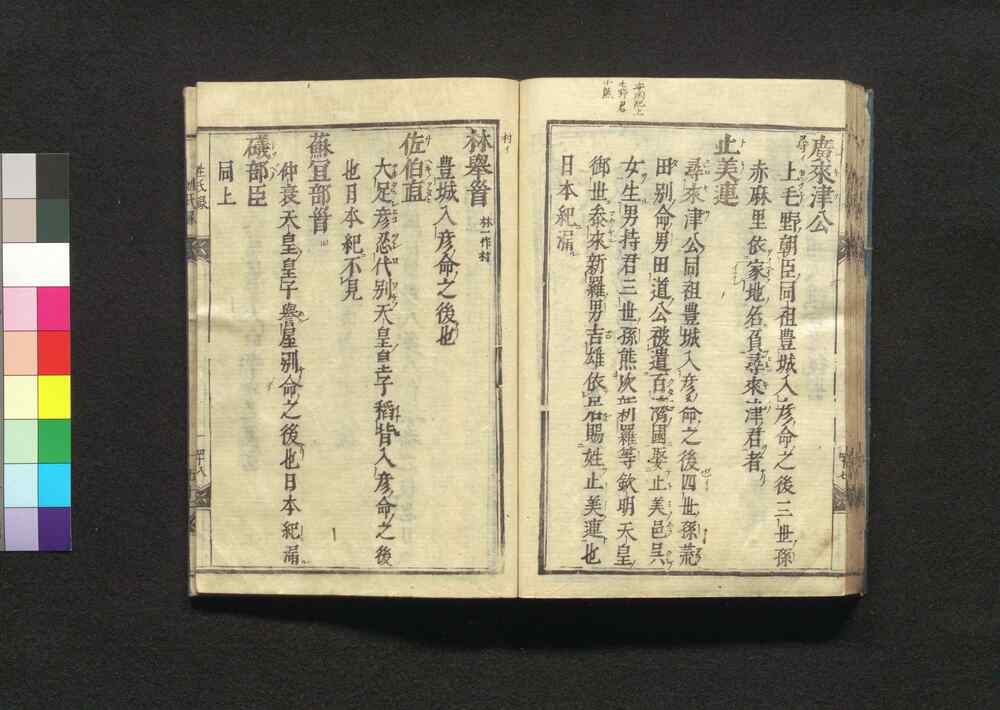 廣來津公
上毛野朝臣同祖豊城入彦命之後三世孫
赤麻里依家地名負尋來津君者
止美連
尋來津公同祖豊城入彦命之後四世孫荒
田別命男田道公被遣百濟國娶止美邑吳
女生男持君三世孫熊次新羅等欽明天皇
御世參來新羅男吉雄依居賜姓止美連也
日本紀漏
林擧首 林一作村
豊城入彦命之後也
佐伯直
大足彦忍代別天皇皇子稻背入彦命之後
也日本紀不見
蘇宜部首
仲哀天皇皇子譽屋別命之後也日本紀漏
磯部臣
同上